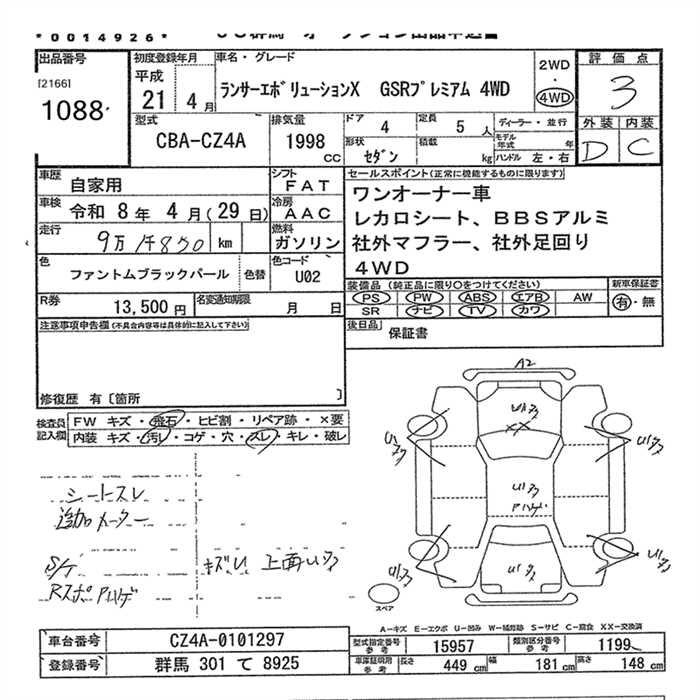 *0014926*
出品番号
[2166]
1088
初度登録年月
平成
21年 4月
車名・グレード
ランサーエボリューションX GSRプレミアム 4WD
2WD
・
4WD
評価点
3
外装 内装
D C
型式
CBA-CZ4A
排気量
1998
CC
ドア
4
定員
5 人
形状
セダン
積載
kg
ディーラー・並行
モデル年式 年
ハンドル 左・右
車歴
自家用
シフト
FAT
車検
令和 8年 4月(29日)
冷房
AAC
走行
km
燃料
ガソリン
色
ファントムブラックパール
色替
色コード
U02
R券
13,500円
名変通知期限
月 日
セールスポイント(正常に機能するものに限ります)
ワンオーナー車
レカロシート、BBSアルミ
社外マフラー、社外足回り
4WD
装備品(純正品に限り○をつけてください)
PS PW ABS エアB AW
SR ナビ TV カワ
新車保証書
有・無
後日品
保証書
注意事項申告欄(不具合内容等は具体的に記入して下さい)
修復歴 有〔箇所 〕
検査員記入欄
FW キズ・飛石・ヒビ割・リペア跡・×要
内装 キズ・汚レ・コゲ・穴・スレ・キレ・破レ
シートスレ
追加メーター
S/ケ キズU 上面Uタ
RスポAハゲ
A2
XX
スペア
A-キズ E-エクボ U-凹み W-補修跡 S-サビ C-腐食 XX-交換済
車台番号
CZ4A-0101297
登録番号
群馬 301 て 8925
型式指定番号
参考
15957
類別区分番号
参考
1199
車庫証明用
参考
長さ
449 cm
幅
181 cm
高さ
148 cm